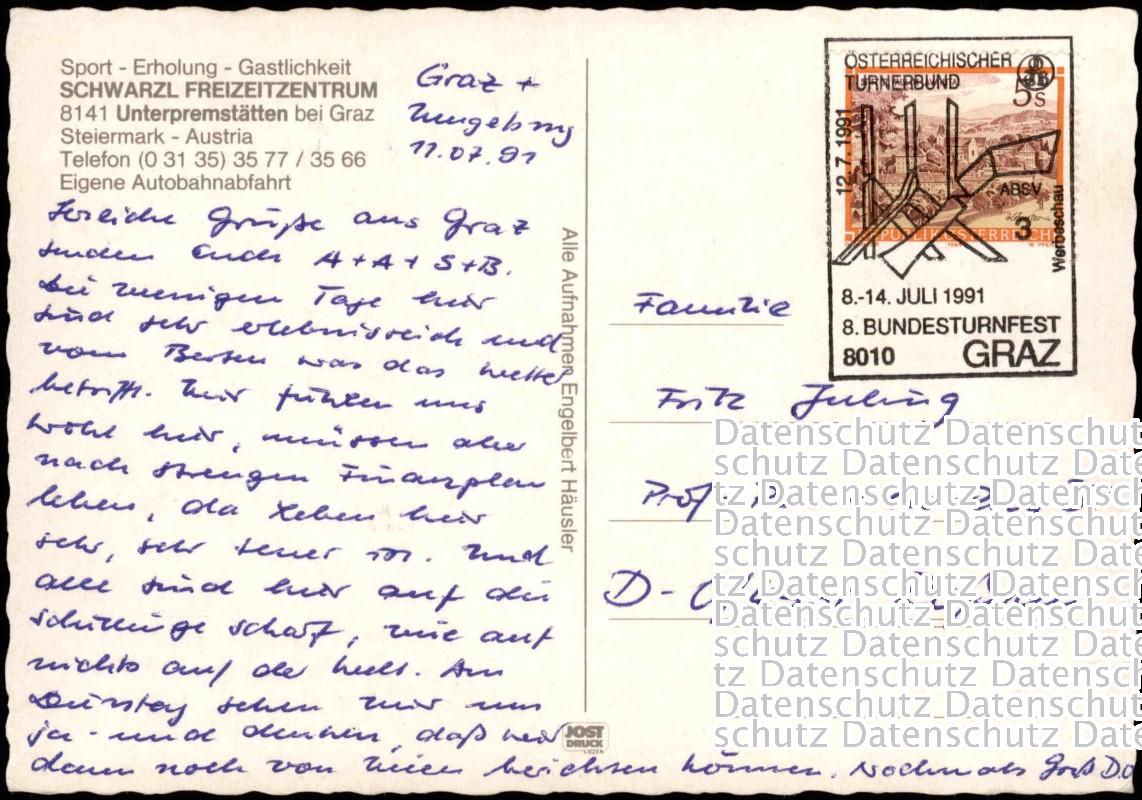 Sport - Erholung - Gastlichkeit
SCHWARZL FREIZEITZENTRUM
8141 Unterpremstätten bei Graz
Steiermark - Austria
Telefon (0 31 35) 35 77 / 35 66
Eigene Autobahnabfahrt
Graz +
Umgebung
11.07.91
Herzliche Grüße aus Graz
senden Euch A + A + S + B.
Die wenigen Tage hier
sind sehr erlebnisreich und
vom Besten was das Wetter
betrifft. Wir fühlen uns
wohl hier, müssen aber
nach strengen Finanzplan
leben, da Leben hier
sehr, sehr teuer ist. Und
alle sind hier auf die
Schillinge scharf, wie auf
nichts auf der Welt. Am
Dienstag sehen wir uns
ja - und denken, daß wir
dann noch von hier berichten können. Nochmals Gruß D.O
Alle Aufnahmen Engelbert Häusler
JOST
DRUCK
LIEZEN
ÖSTERREICHISCHER
TURNERBUND
5 S
12.7.1991
ABSV
3
Werbeschau
REPUBLIK ÖSTERREICH
8.-14. JULI 1991
8. BUNDESTURNFEST
8010 GRAZ
Familie
Fritz Juling
Prof.
D-
Datenschutz Datenschut
schutz Datenschutz Date
tz Datenschutz Datensc
Datenschutz Datenschut
schutz Datenschutz Date
tz Datenschutz Datensc
Datenschutz Datenschut
schutz Datenschutz Date
tz Datenschutz Datensc
Datenschutz Datenschut
schutz Datenschutz Date